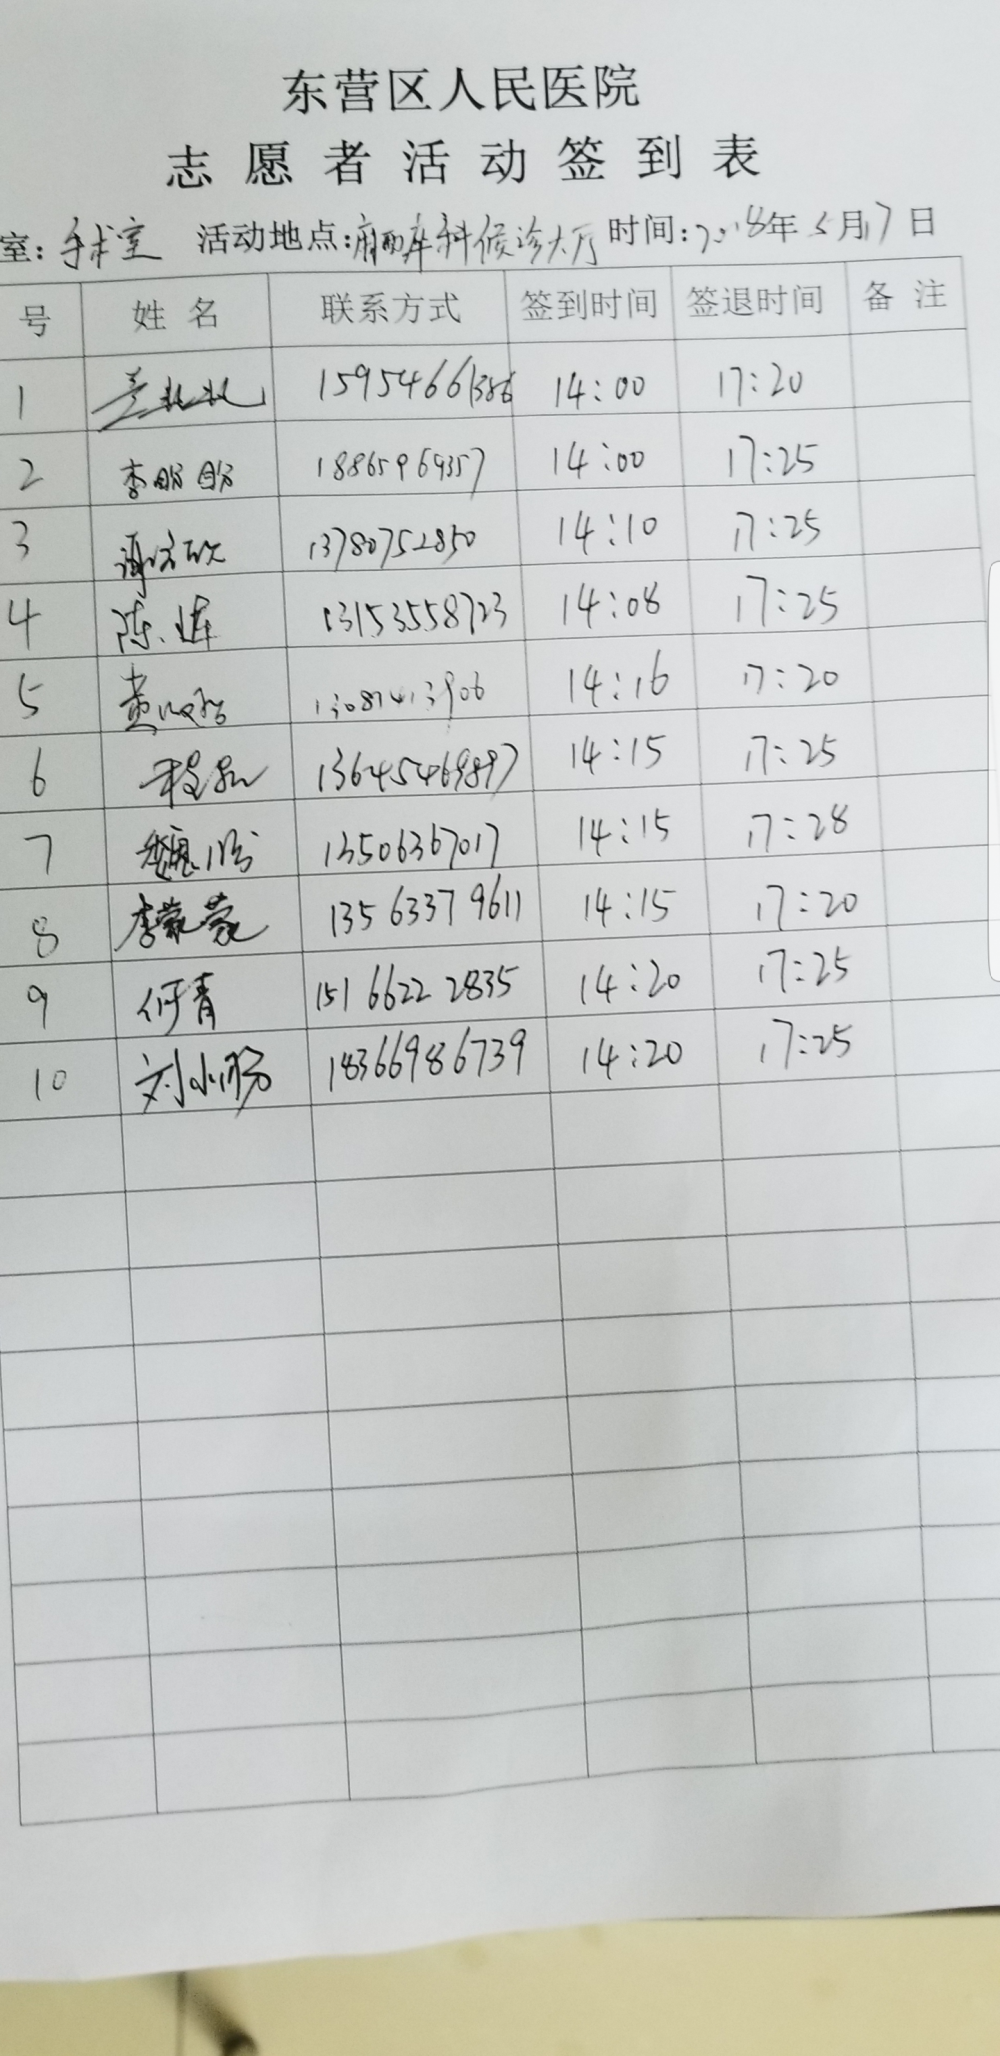 东营区人民医院
志愿者活动签到表
室：手术室 活动地点：麻醉科候诊大厅 时间：2018年5月17日
号 姓名 联系方式 签到时间 签退时间 备注
1 15954661386 14:00 17:20
2 李盼盼 18865969357 14:00 17:25
3 13780752850 14:10 17:25
4 陈 13153558723 14:08 17:25
5 黄 14:16 17:20
6 程 13645469897 14:15 17:25
7 魏 13506367017 14:15 17:28
8 李蒙蒙 13563379611 14:15 17:20
9 何青 15166222835 14:20 17:25
10 刘小 18366986739 14:20 17:25